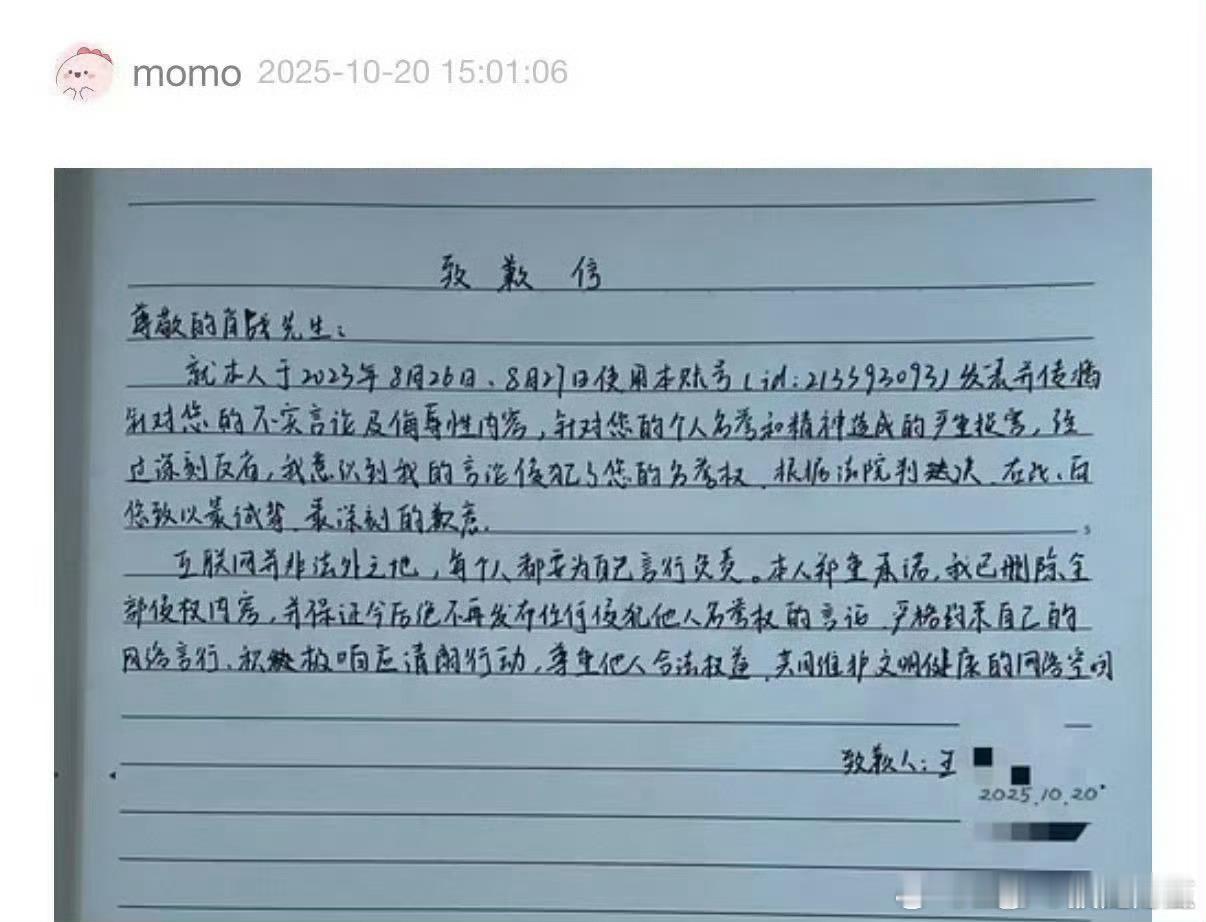 momo 2025-10-20 15:01:06
致歉信
尊敬的肖战先生:
就本人于2023年8月26日、8月27日使用本账号(id:213593093)发表并传播
针对您的不实言论及侮辱性内容,针对您的个人名誉和精神造成的严重损害,经
过深刻反省,我意识到我的言论侵犯了您的名誉权、根据法院判决、在此、向
您致以最诚挚、最深刻的歉意。
互联网并非法外之地,每个人都要为自己言行负责。本人郑重承诺,我已删除全
部侵权内容,并保证今后绝不再发布任何侵犯他人名誉权的言论、严格约束自己的
网络言行、积极响应清朗行动,尊重他人合法权益、共同维护文明健康的网络空间
致歉人:王
2025.10.20.